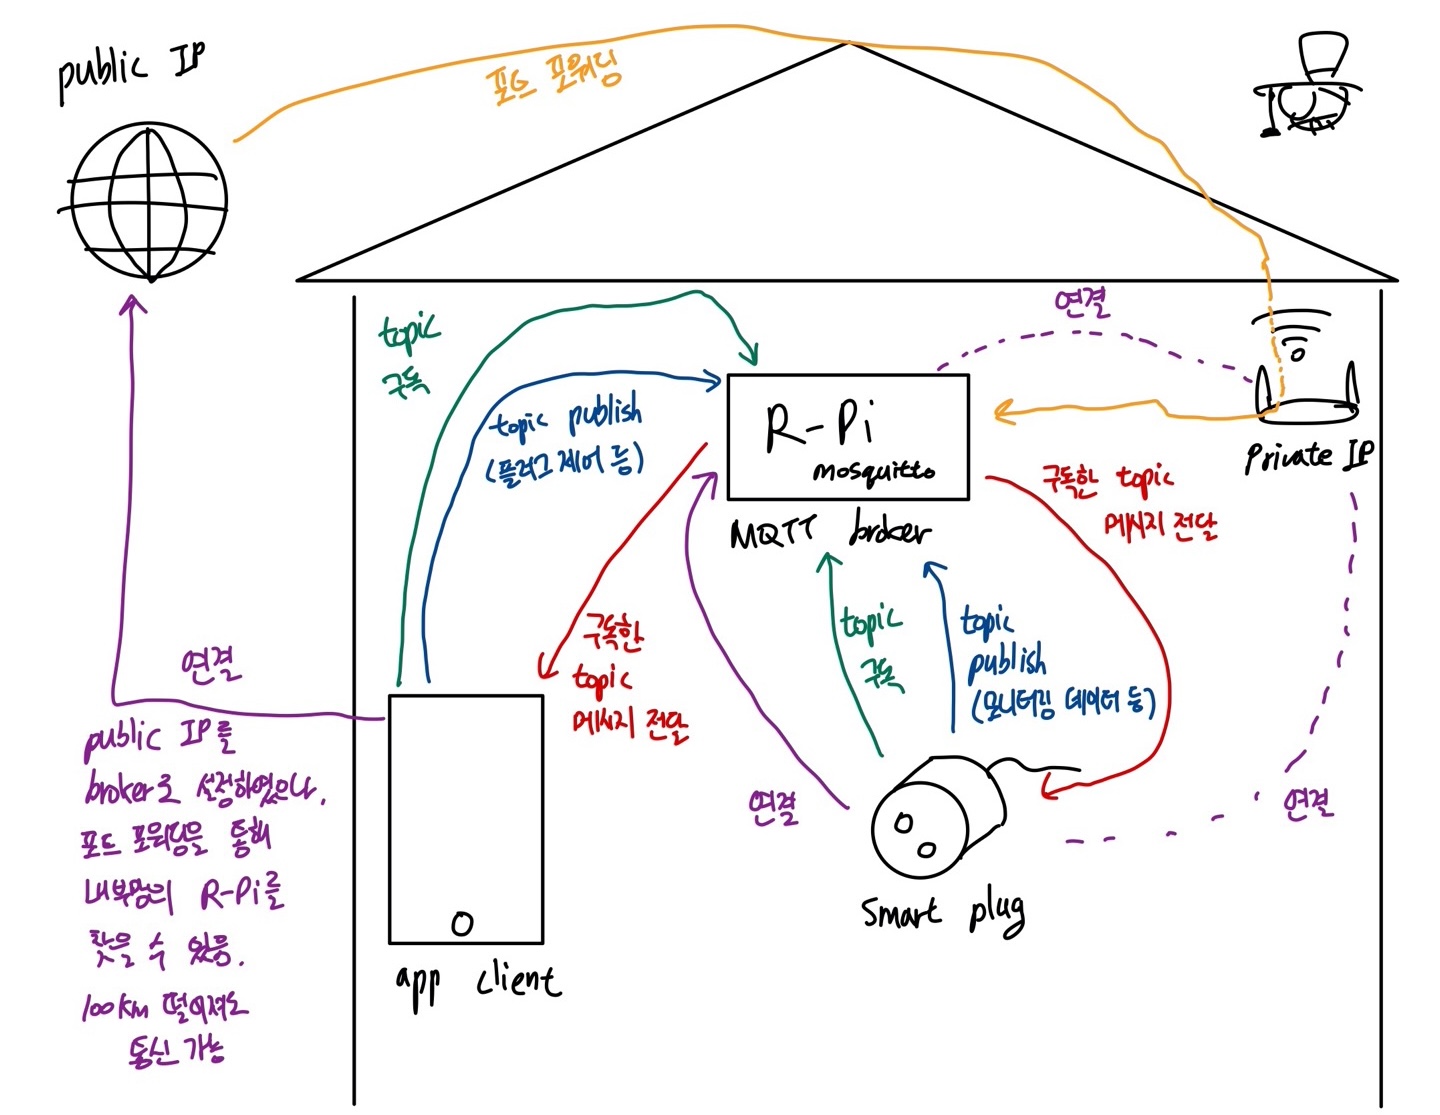 public IP
포트 포워딩
topic
구독
topic publish
(플러그 제어 등)
R-Pi
mosquitto
MQTT broker
연결
Private IP
구독한 topic
메시지 전달
구독한
topic
메시지 전달
topic
구독
topic
publish
(모니터링 데이터 등)
연결
public IP를
broker로 설정하였으나,
포트 포워딩을 통해
내부망의 R-Pi를
찾을 수 있음.
100km 떨어져도
통신 가능
app client
연결
smart plug
연결